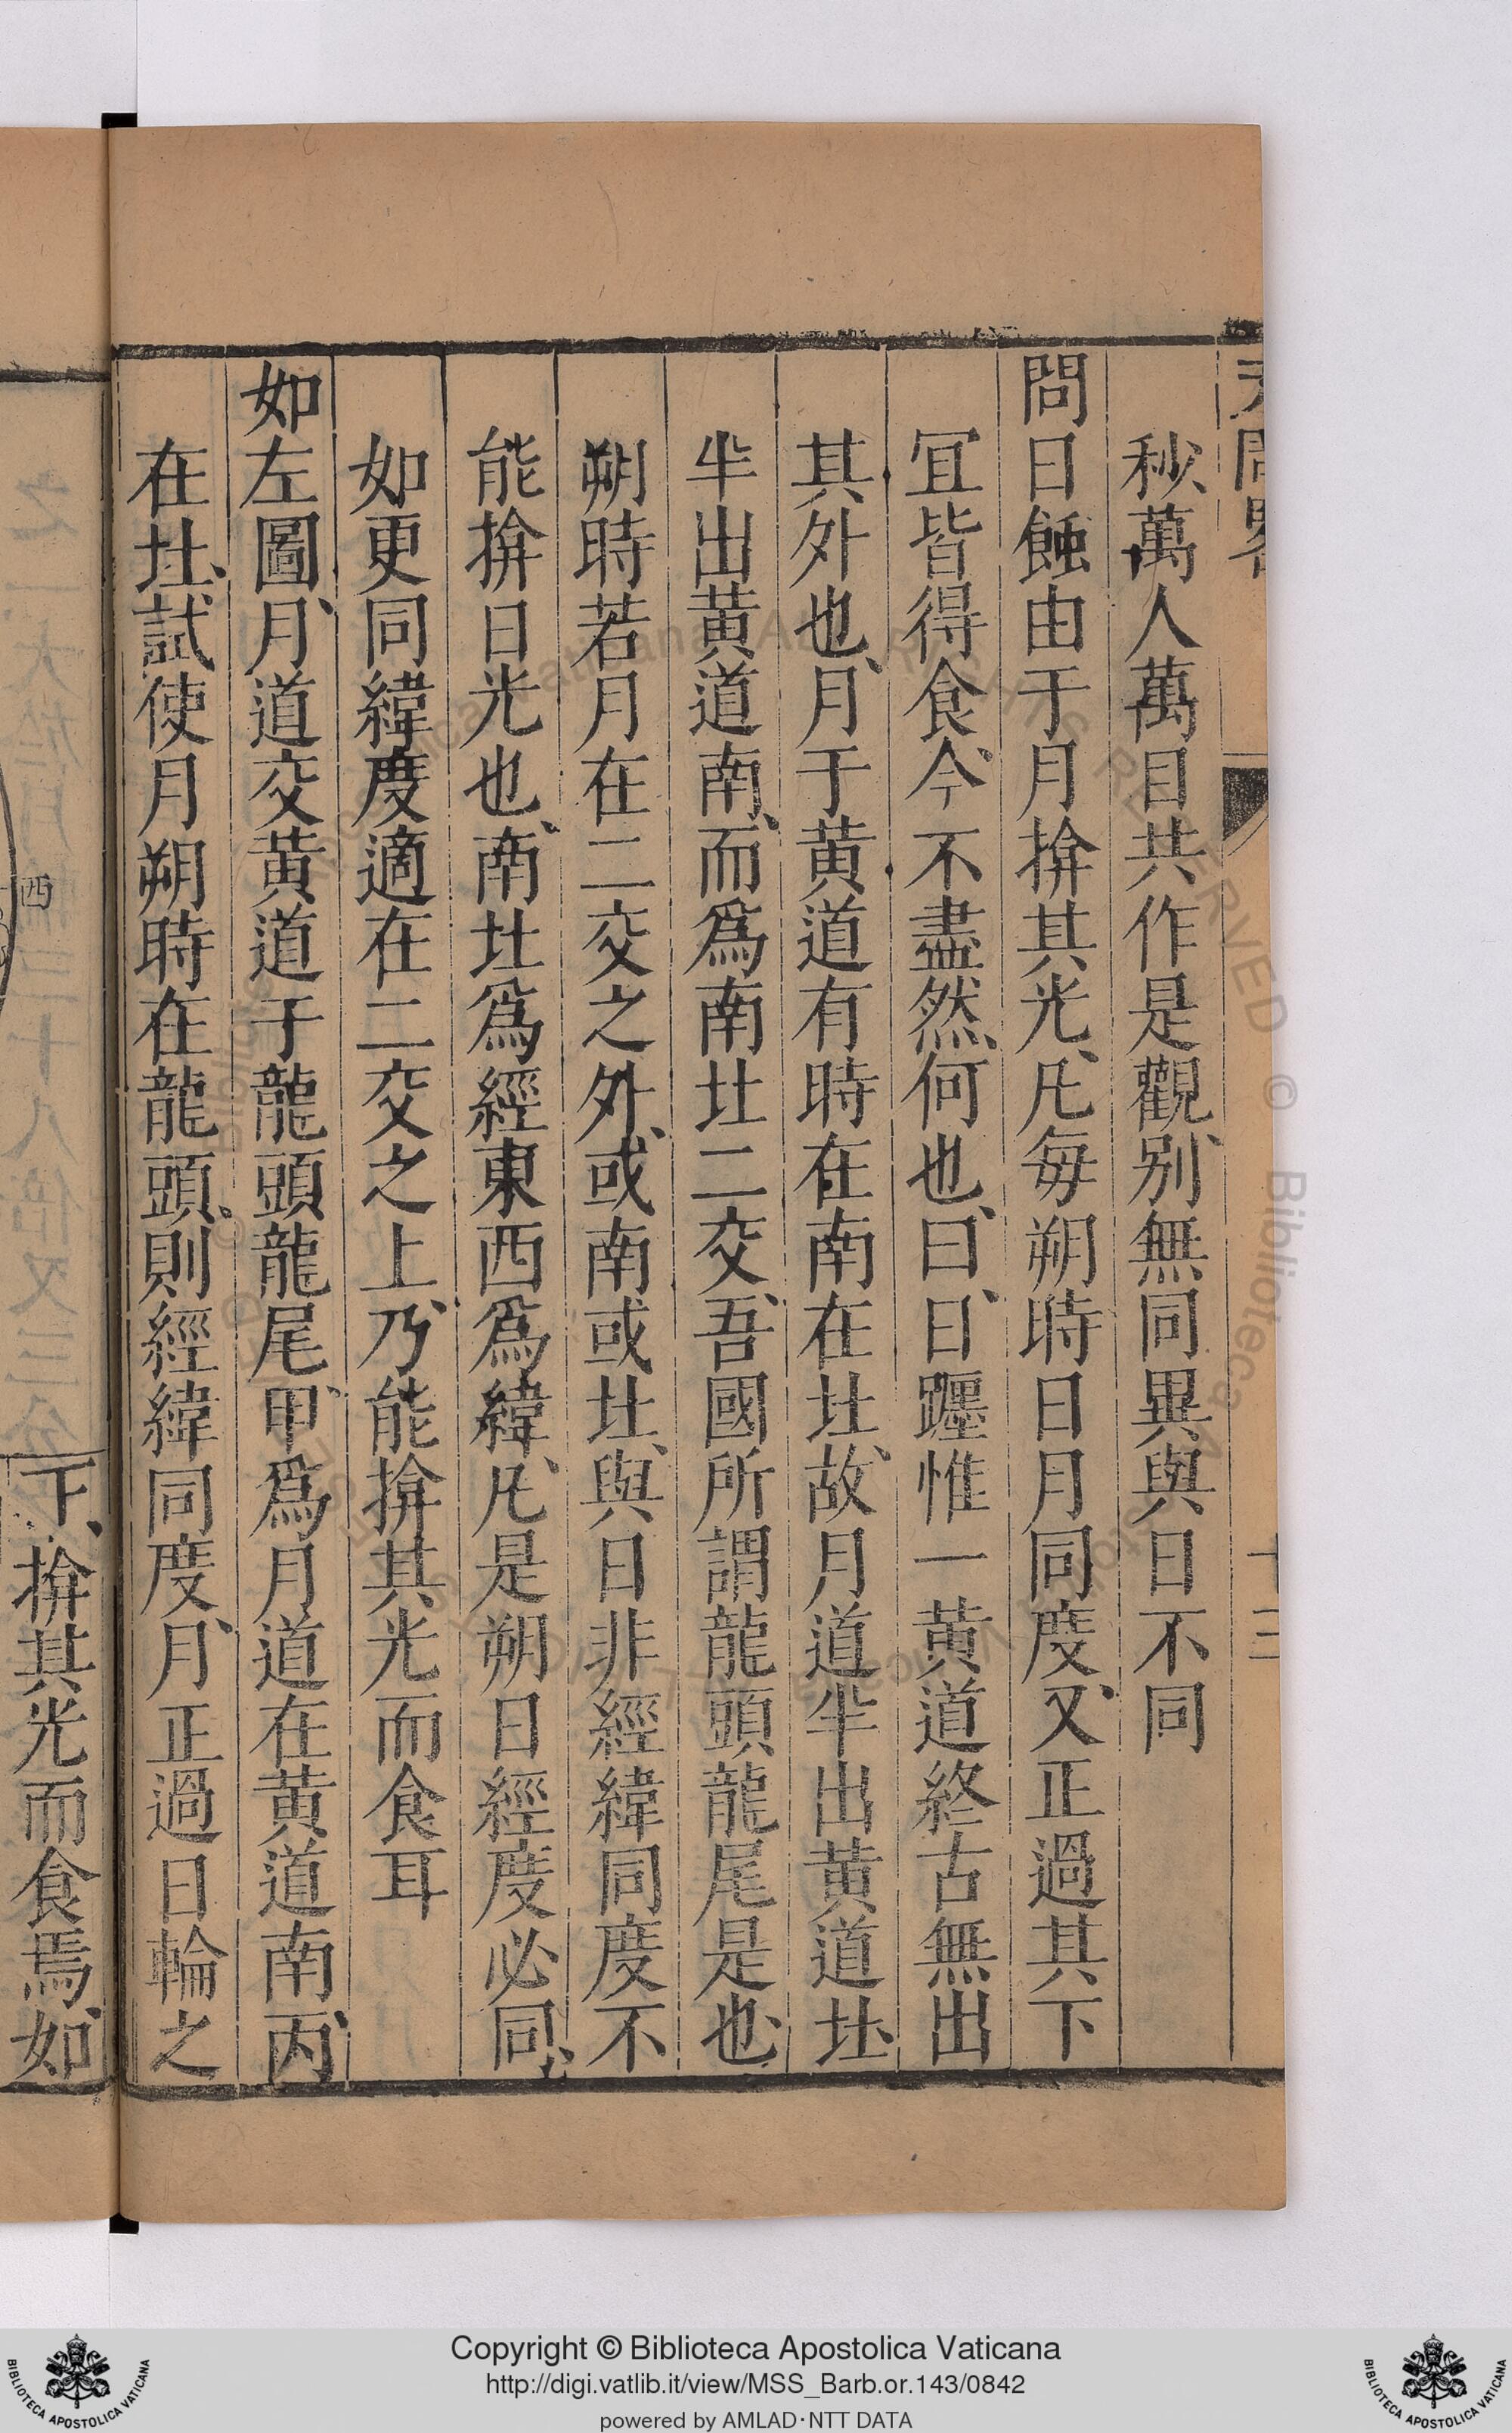 天問畧
十三
秒、萬人萬目共作是觀、别無同異與日不同
問日蝕由于月揜其光、凡每朔時日月同度、又正過其下
冝皆得食、今不盡然、何也、曰、日躔惟一黄道終古無出
其外也、月于黄道有時在南在北、故月道半出黄道北、
半出黄道南、而爲南北二交、吾國所謂龍頭龍尾是也、
朔時若月在二交之外、或南或北、與日非經緯同度不
能揜日光也、南北爲經東西爲緯、凡是朔日經度必同、
如更同緯度適在二交之上、乃能揜其光而食耳
如左圖、月道交黄道于龍頭龍尾、甲爲月道在黄道南、丙
在北、試使月朔時在龍頭、則經緯同度、月正過日輪之
下、揜其光而食焉、如
西
Copyright © Biblioteca Apostolica Vaticana
http://digi.vatlib.it/view/MSS_Barb.or.143/0842
powered by AMLAD·NTT DATA
BIBLIOTECA APOSTOLICA VATICANA
BIBLIOTECA APOSTOLICA VATICANA